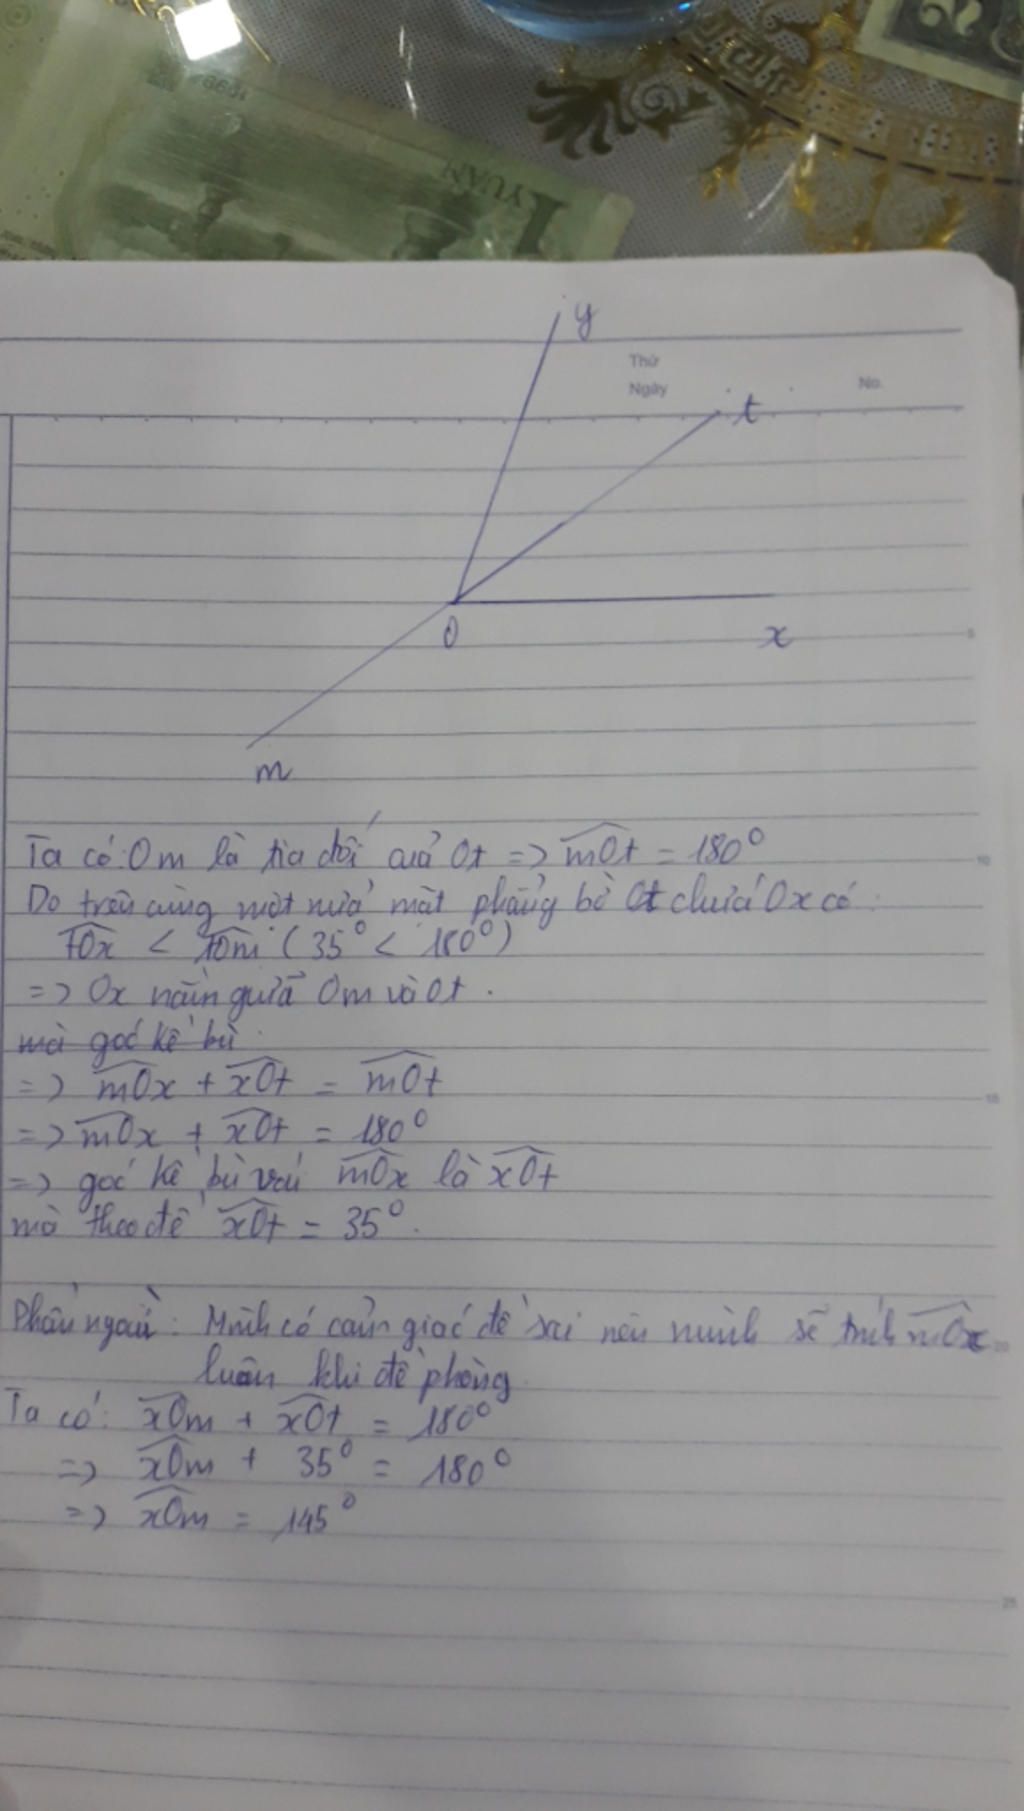 YUAN
1
y
Thứ
Ngày
No.
t
O
x
5
m
Ta có: Om là tia đối cuả Ot => mOt = 180°
10
Do trên cùng một nửa mặt phẳng bờ Ot chứa Ox có:
tOx < tOm (35° < 180°)
=> Ox nằm giữa Om và Ot.
mà góc kề bù
=> mOx + xOt = mOt
15
=> mOx + xOt = 180°
=> góc kề bù với mOx là xOt
mà theo đề xOt = 35°.
Phần ngoài: Mình có cảm giác đề sai nên mình sẽ tính mOx
20
luôn khi đề phòng
Ta có: xOm + xOt = 180°
=> xOm + 35° = 180°
=> xOm = 145°
25